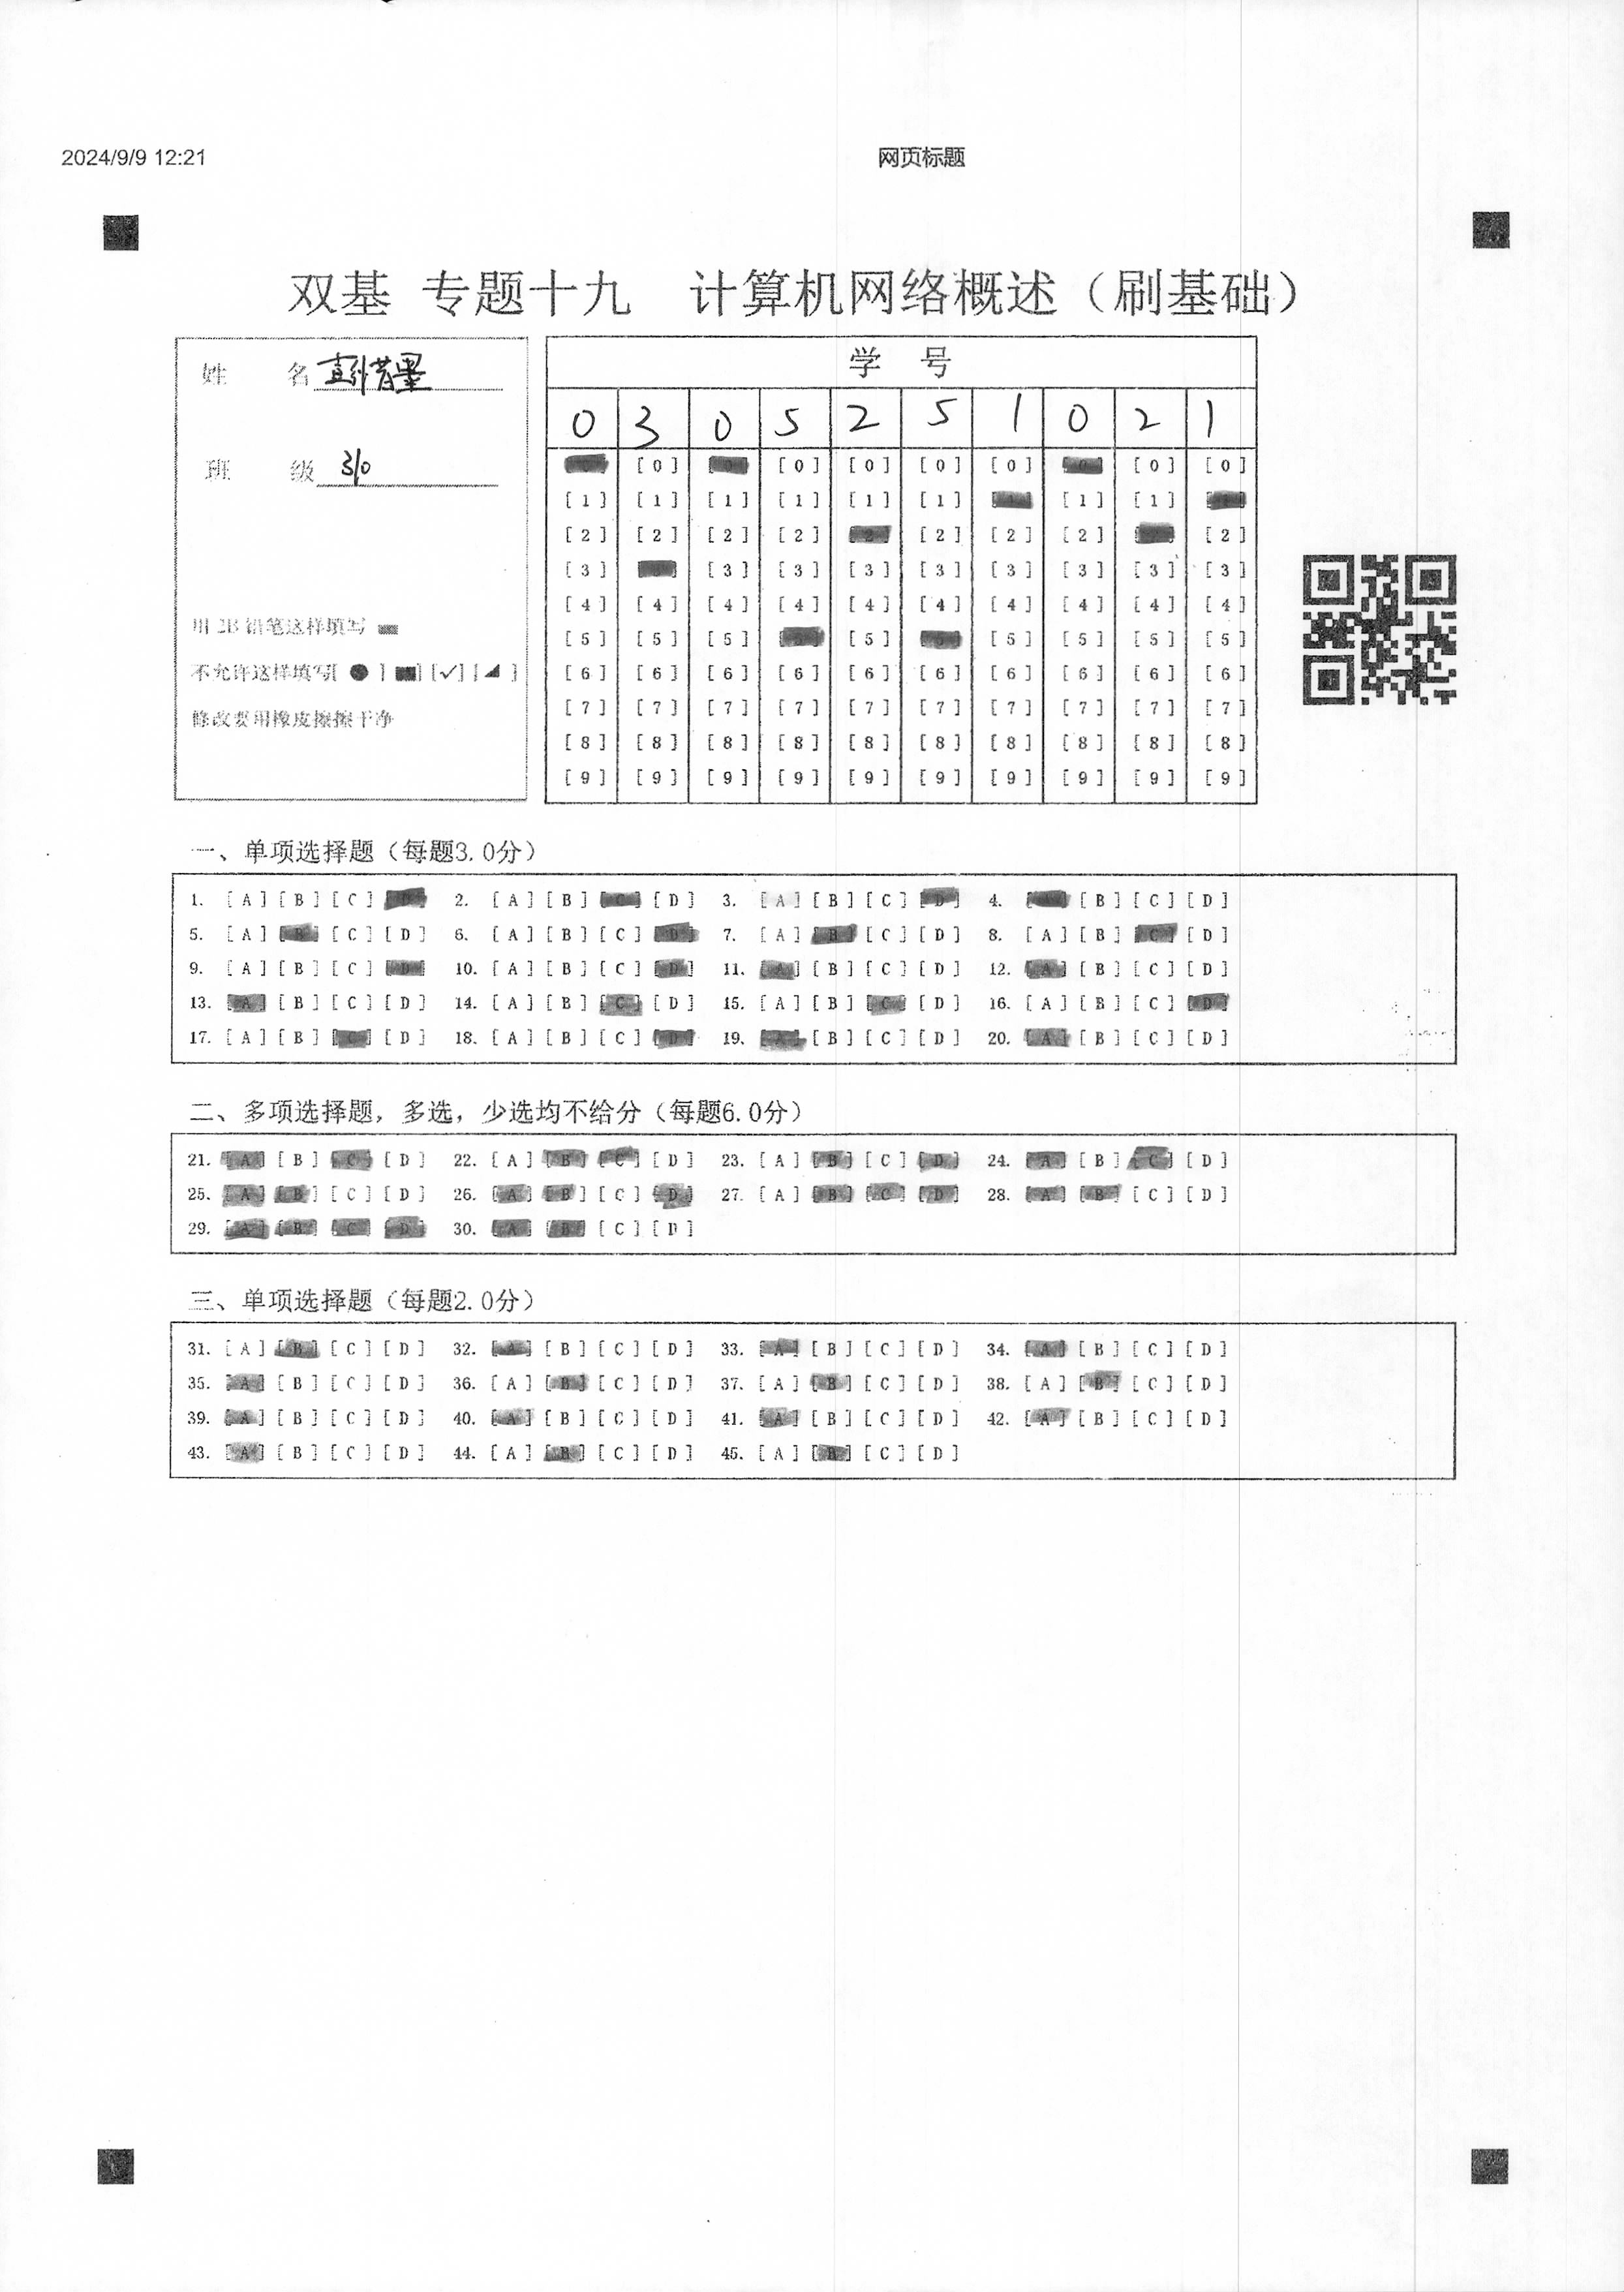 2024/9/9 12:21
网页标题
双基 专题十九 计算机网络概述（刷基础）
姓 名
班 级 310
用 2B 铅笔这样填写
不允许这样填写[ ● ] [ ■ ] [✓] [ ◢ ]
修改要用橡皮擦擦干净
学 号
0 3 0 5 2 5 1 0 2 1
[0] [0] [0] [0] [0] [0] [0]
[1] [1] [1] [1] [1] [1] [1] [1]
[2] [2] [2] [2] [2] [2] [2] [2]
[3] [3] [3] [3] [3] [3] [3] [3] [3]
[4] [4] [4] [4] [4] [4] [4] [4] [4] [4]
[5] [5] [5] [5] [5] [5] [5] [5]
[6] [6] [6] [6] [6] [6] [6] [6] [6] [6]
[7] [7] [7] [7] [7] [7] [7] [7] [7] [7]
[8] [8] [8] [8] [8] [8] [8] [8] [8] [8]
[9] [9] [9] [9] [9] [9] [9] [9] [9] [9]
一、单项选择题（每题3.0分）
1. [A] [B] [C] [D] 2. [A] [B] [C] [D] 3. [A] [B] [C] [D] 4. [A] [B] [C] [D]
5. [A] [B] [C] [D] 6. [A] [B] [C] [D] 7. [A] [B] [C] [D] 8. [A] [B] [C] [D]
9. [A] [B] [C] [D] 10. [A] [B] [C] [D] 11. [A] [B] [C] [D] 12. [A] [B] [C] [D]
13. [A] [B] [C] [D] 14. [A] [B] [C] [D] 15. [A] [B] [C] [D] 16. [A] [B] [C] [D]
17. [A] [B] [C] [D] 18. [A] [B] [C] [D] 19. [A] [B] [C] [D] 20. [A] [B] [C] [D]
二、多项选择题，多选，少选均不给分（每题6.0分）
21. [A] [B] [C] [D] 22. [A] [B] [C] [D] 23. [A] [B] [C] [D] 24. [A] [B] [C] [D]
25. [A] [B] [C] [D] 26. [A] [B] [C] [D] 27. [A] [B] [C] [D] 28. [A] [B] [C] [D]
29. [A] [B] [C] [D] 30. [A] [B] [C] [D]
三、单项选择题（每题2.0分）
31. [A] [B] [C] [D] 32. [A] [B] [C] [D] 33. [A] [B] [C] [D] 34. [A] [B] [C] [D]
35. [A] [B] [C] [D] 36. [A] [B] [C] [D] 37. [A] [B] [C] [D] 38. [A] [B] [C] [D]
39. [A] [B] [C] [D] 40. [A] [B] [C] [D] 41. [A] [B] [C] [D] 42. [A] [B] [C] [D]
43. [A] [B] [C] [D] 44. [A] [B] [C] [D] 45. [A] [B] [C] [D]